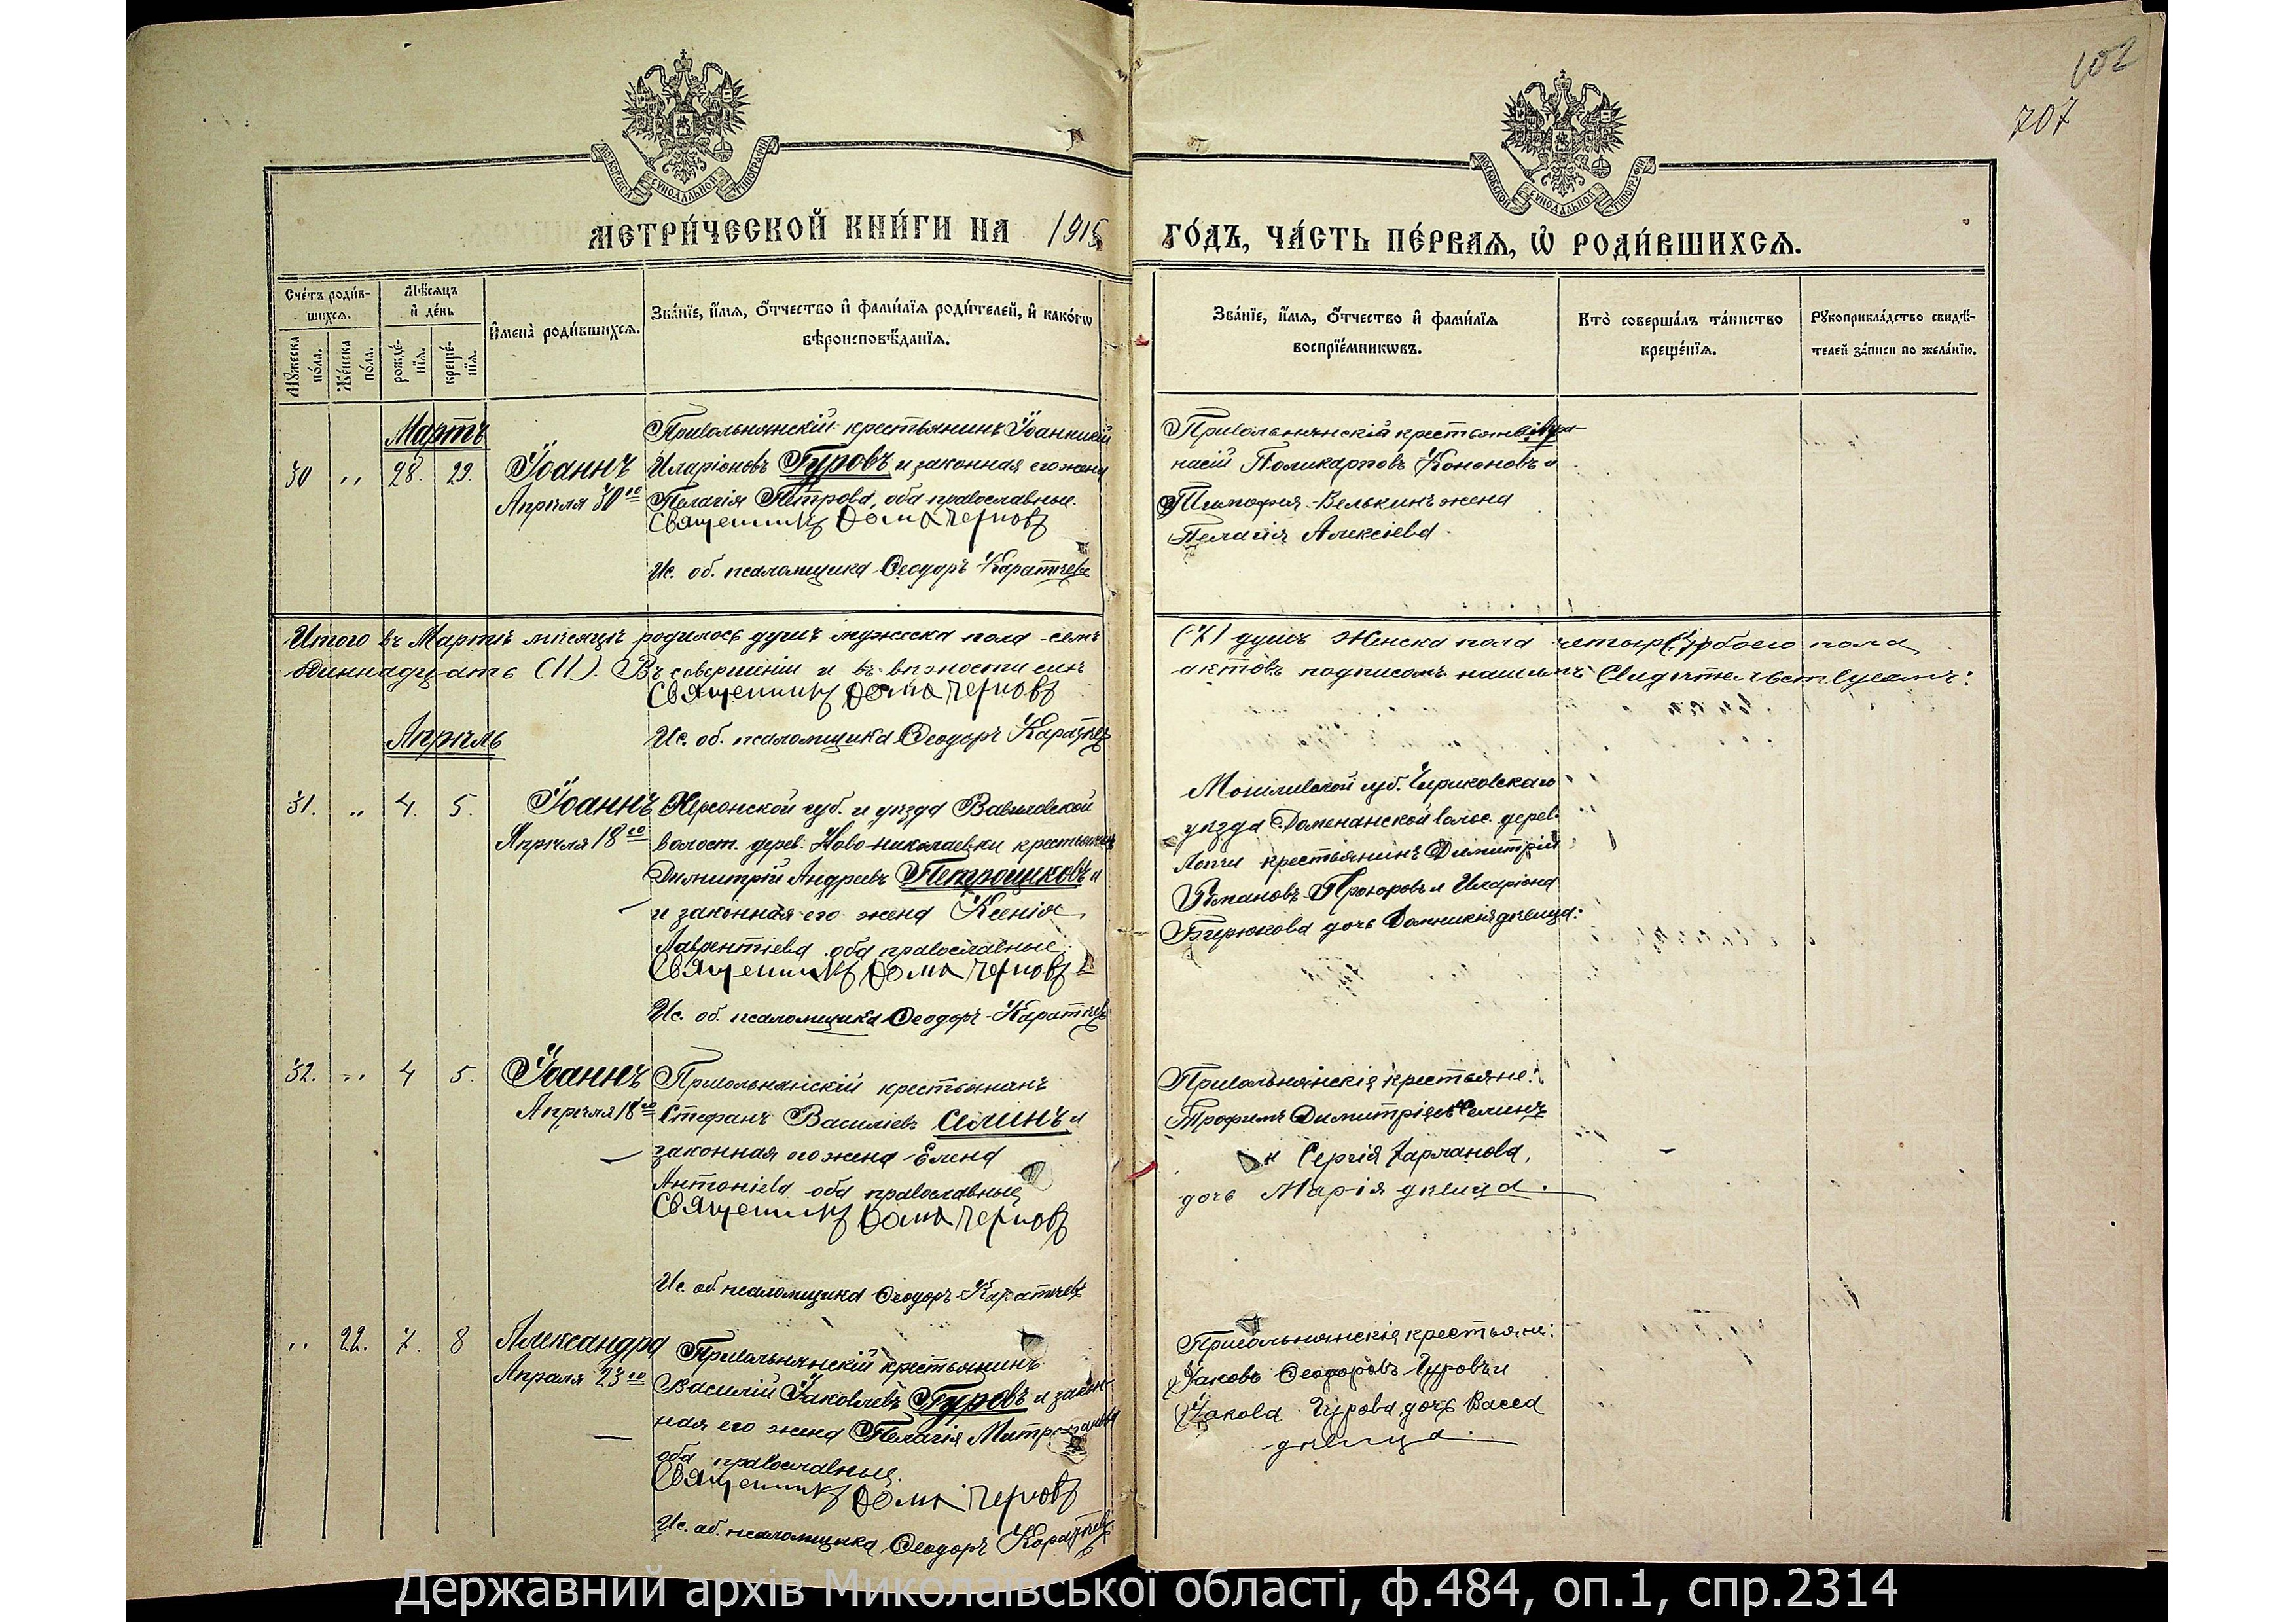 102
707
МОСКОВСКОЙ СѴНОДАЛЬНОЙ ТИПОГРАФІИ
МОСКОВСКОЙ СѴНОДАЛЬНОЙ ТИПОГРАФІИ
МЕТРИ́ЧЕСКОЙ КНИ́ГИ НА 1915
ГО́ДЪ, ЧА́СТЬ ПЕ́РВАѦ, Ѡ҆ РОДИ́ВШИХСѦ.
Сче́тъ роди́в-
шихсѧ.
Мѣ́сѧцъ
и҆ де́нь
Мꙋ́жеска
по́ла.
Же́нска
по́ла.
рожде́-
нїѧ.
креще́-
нїѧ.
И҆мена̀ роди́вшихсѧ.
Зва́нїе, и҆́мѧ, ѻ҆́тчество и҆ фами́лїѧ роди́телей, и҆ како́гѡ
вѣроисповѣ́данїѧ.
Зва́нїе, и҆́мѧ, ѻ҆́тчество и҆ фами́лїѧ
воспрїе́мникѡвъ.
Кто̀ соверша́лъ та́инство
креще́нїѧ.
Рꙋкоприкла́дство свидѣ́-
телей за́писи по жела́нїю.
Мартъ
30 " 28. 29. Іоаннъ
Апрѣля 30го
Привольнянскій крестьянинъ Іоанникій
Иларіоновъ Гуровъ и законная его жена
Пелагія Петрова, оба православные.
Священникъ Ѳома Черновъ
Ис. об. псаломщика Ѳеодоръ Каратѣевъ
Привольнянскій крестьянинъ Аѳа-
насій Поликарповъ Кононовъ и
Тимоѳея Велькинъ жена
Пелагія Алексіева.
Итого въ Мартѣ мѣсяцѣ родилось душъ мужеска пола семь
(7) душъ женска пола четыре (4) обоего пола
одиннадцать (11). Въ совершеніи и въ вѣрности сихъ
актовъ подписомъ нашимъ Свидѣтельствуемъ:
Священникъ Ѳома Черновъ
Ис. об. псаломщика Ѳеодоръ Каратѣевъ
Апрѣль
31. " 4. 5. Іоаннъ
Апрѣля 18го
Херсонской губ. и уѣзда Вавиловской
волост. дерев. Ново-николаевки крестьянинъ
Димитрій Андреевъ Петрошковъ и
и законная его жена Ксенія
Лаврентіева оба православные.
Священникъ Ѳома Черновъ
Ис. об. псаломщика Ѳеодоръ Каратѣевъ
Могилевской губ. Чериковскаго
уѣзда Доменанской волос. дерев.
крестьянинъ Димитрій
Романовъ Прохоровъ и Иларіона
Бирюкова дочь Домникія дѣвица:
32. " 4 5. Іоаннъ
Апрѣля 18го
Привольнянскій крестьянинъ
Стефанъ Василіевъ Селинъ и
законная его жена Елена
Антоніева оба православные
Священникъ Ѳома Черновъ
Ис. об. псаломщика Ѳеодоръ Каратѣевъ
Привольнянскія крестьяне:
Трофимъ Димитріевъ Селинъ
и Сергія Харланова,
дочь Марія дѣвица.
" 22. 7. 8 Александра
Апрѣля 23го
Привольнянскій крестьянинъ
Василій Іаковлевъ Гуровъ и закон-
ная его жена Пелагія Митрофанова
оба православные.
Священникъ Ѳома Черновъ
Ис. об. псаломщика Ѳеодоръ Каратѣевъ
Привольнянскія крестьяне:
Іаковъ Ѳеодоровъ Гуровъ и
Іакова Гурова дочь Васса
дѣвица.
Державний архів Миколаївської області, ф.484, оп.1, спр.2314